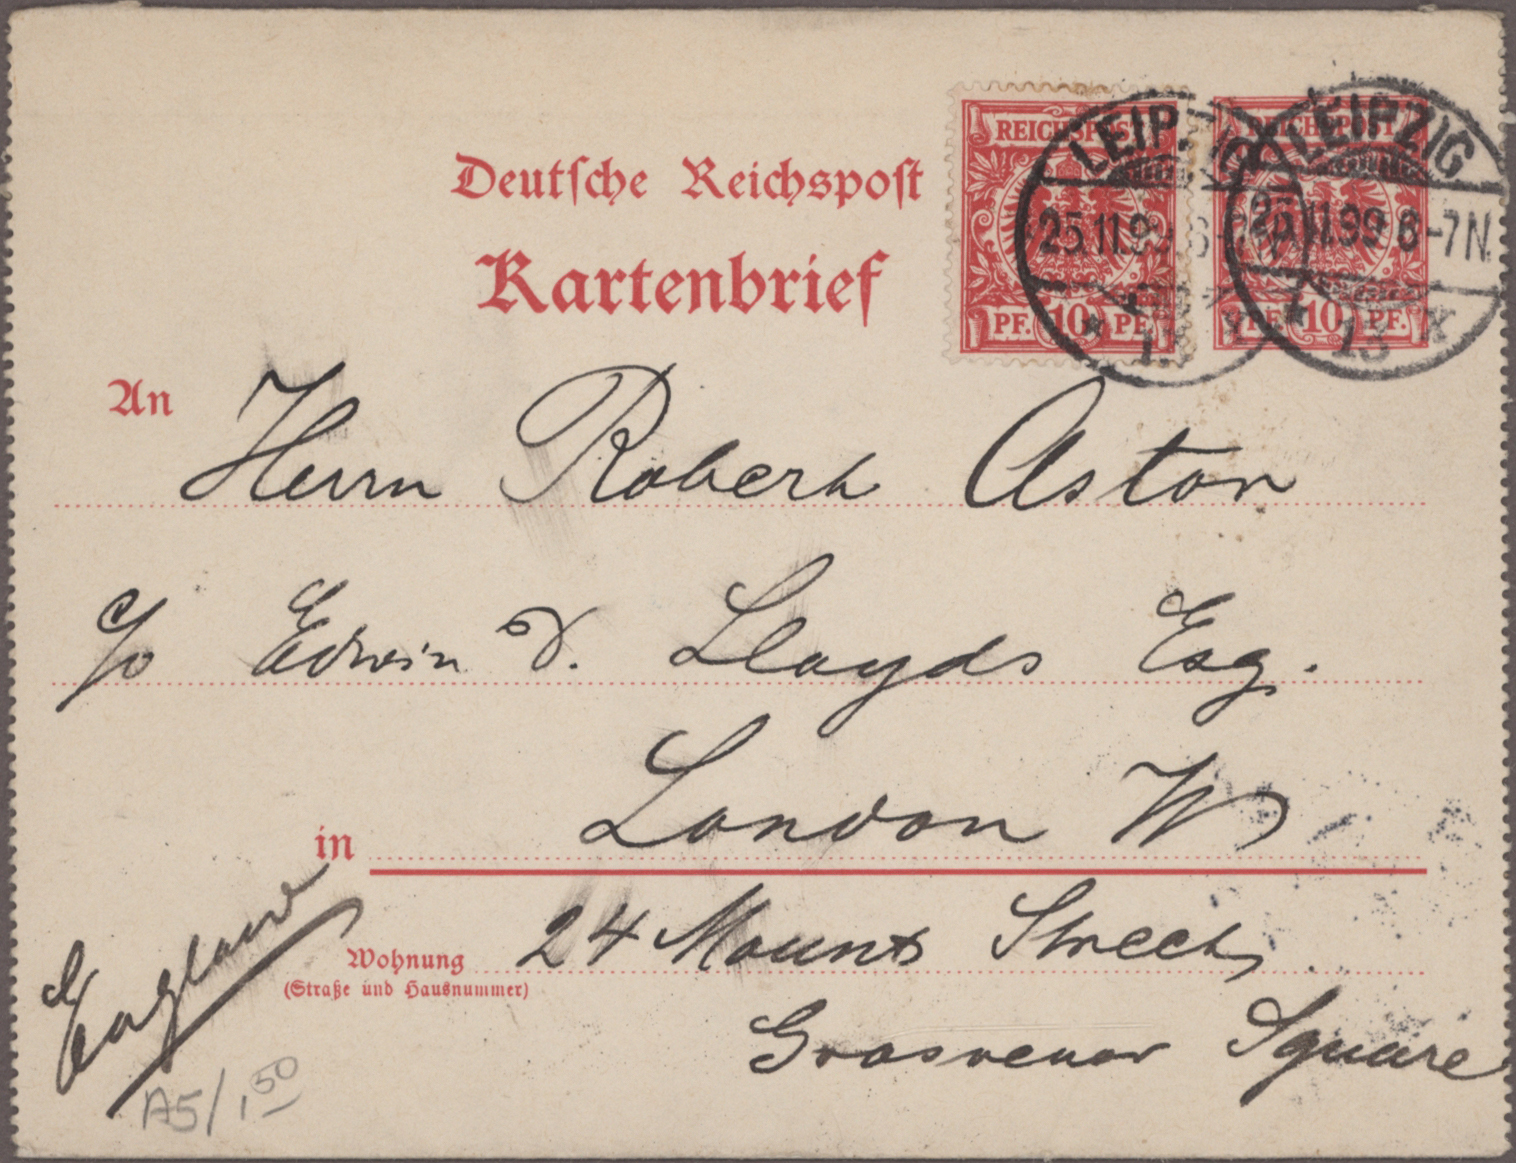 Deutsche Reichspost
Kartenbrief
REICHSPOST
PF. 10 PF.
REICHSPOST
PF. 10 PF.
LEIPZIG
25.11.99 6-7N.
* 13 X
LEIPZIG
25.11.99 6-7N.
* 13 X
An Herrn Robert Aston
c/o Edwin D. Lloyds Esq.
in London W
Wohnung 24 Mount Street,
(Straße und Hausnummer)
Grosvenor Square
England
A5/1,50